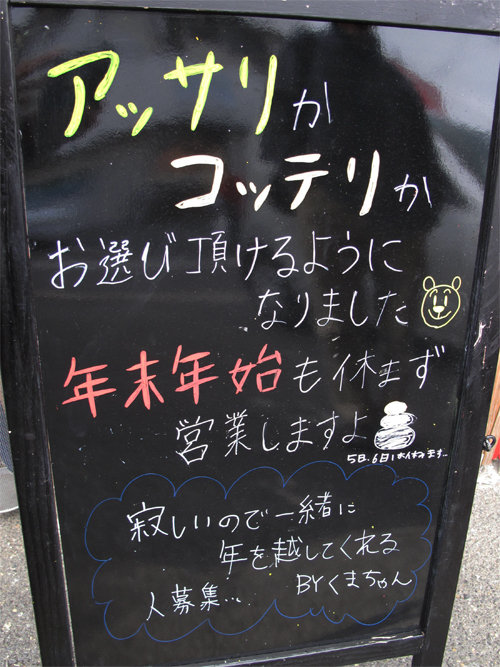 アッサリか
コッテリか
お選び頂けるように
なりました
年末年始も休まず
営業しますよ
5日、6日お休みます…
寂しいので一緒に
年を越してくれる
人募集… BYくまちゃん